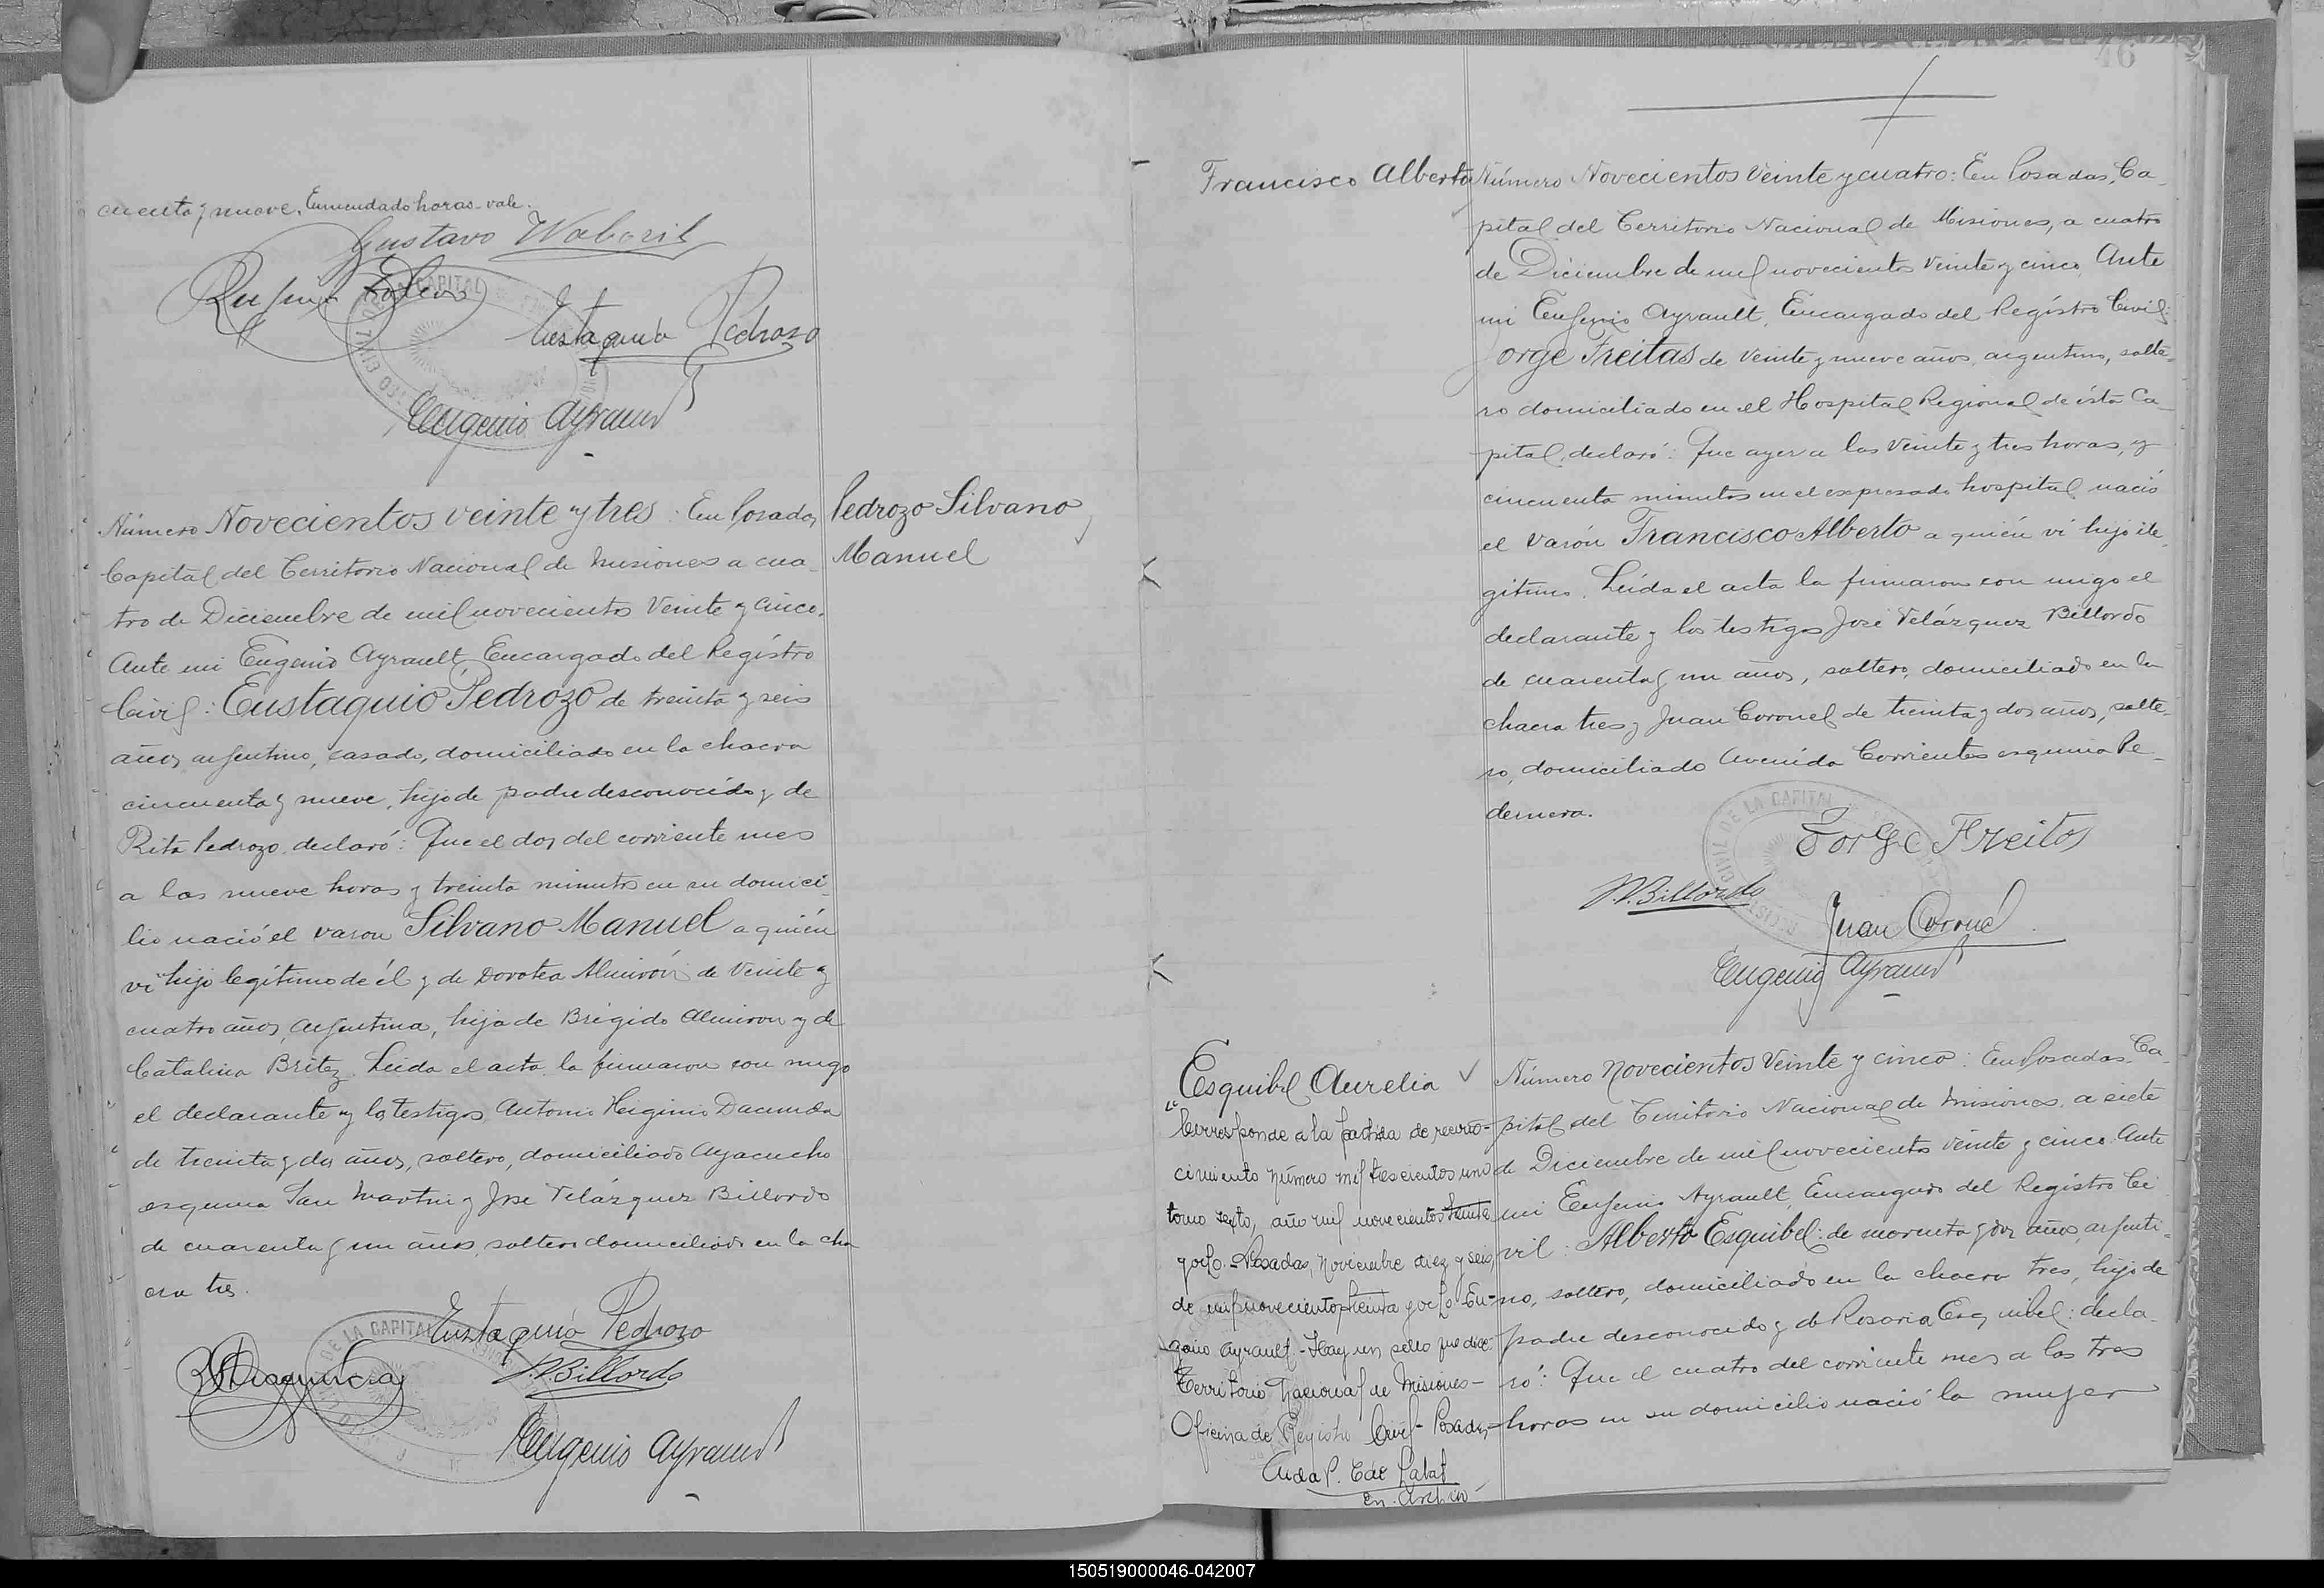 cuenta y nueve. Enmendado horas - vale.
Gustavo
Eustaquio Pedrozo
Eugenio Ayrault
Número Novecientos veinte y tres: En Posadas,
Capital del Territorio Nacional de Misiones a cua
tro de Diciembre de mil novecientos veinte y cinco.
Ante mi Eugenio Ayrault, Encargado del Registro
Civil: Eustaquio Pedrozo de treinta y seis
años, argentino, casado, domiciliado en la chacra
cincuenta y nueve, hijo de padre desconocido y de
Rita Pedrozo, declaró: Que el dos del corriente mes
a las nueve horas y treinta minutos en su domici_
lio nació el varon Silvano Manuel a quién
vi hijo legítimo de él y de Dorotea Almirón de veinte y
cuatro años, argentina, hija de Brigido Almiron y de
Catalina Britez. Leida el acta la firmaron con migo
el declarante y los testigos Antonio Higinio Dacunda
de treinta y dos años, soltero, domiciliado Ayacucho
esquina San Martin y José Velázquez Billordo
de cuarenta y un años, soltero domiciliado en la cha
cra tres.
Eustaquio Pedrozo
J.V. Billordo
Eugenio Ayrault
Pedrozo Silvano
Manuel
46
Francisco Alberto
Número Novecientos veinte y cuatro: En Posadas, Ca_
pital del Territorio Nacional de Misiones, a cuatro
de Diciembre de mil novecientos veinte y cinco. Ante
mi Eugenio Ayrault, Encargado del Registro Civil:
Jorge Freitas de veinte y nueve años, argentino, solte_
ro domiciliado en el Hospital Regional de ésta Ca_
pital, declaró: Que ayer a las veinte y tres horas, y
cincuenta minutos en el expresado hospital nació
el varón Francisco Alberto a quién vi hijo ile_
gitimo. Leida el acta la firmaron con migo el
declarante y los testigos José Velázquez Billordo
de cuarenta y un años, soltero, domiciliado en la
chacra tres y Juan Coronel de treinta y dos años, solte_
ro, domiciliado Avenida Corrientes esquina Pe_
dernera.
REGISTRO CIVIL DE LA CAPITAL
Jorge Freitas
J.V. Billordo
Juan Coronel
Eugenio Ayrault
Esquibel Aurelia
"Corresponde a la partida de recono-
cimiento número mil trescientos uno
tomo sexto, año mil novecientos treinta
y ocho.- Posadas, Noviembre diez y seis,
de mil novecientos treinta y ocho - Eu-
genio Ayrault.- Hay un sello que dice:
Territorio Nacional de Misiones -
Oficina de Registro Civil - Posadas -
Número Novecientos veinte y cinco: En Posadas Ca_
pital del Territorio Nacional de Misiones, a siete
de Diciembre de mil novecientos veinte y cinco. Ante
mi Eugenio Ayrault, Encargado del Registro Ci
vil: Alberto Esquibel: de cuarenta y dos años, argenti_
no, soltero, domiciliado en la chacra tres, hijo de
padre desconocido y de Rosaria Esquibel: decla_
ró: Que el cuatro del corriente mes a las tres
horas en su domicilio nació la mujer
150519000046-042007